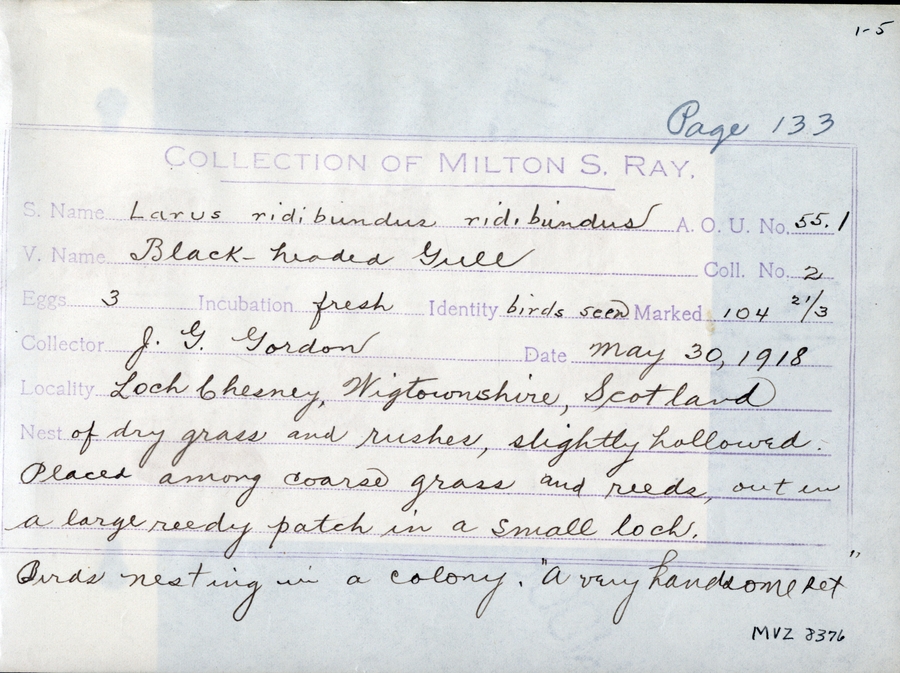 1-5
Page 133
COLLECTION OF MILTON S. RAY.
S. Name Larus ridibundus ridibundus A. O. U. No. 55.1
V. Name Black-headed Gull Coll. No. 2
Eggs 3 Incubation fresh Identity birds seen Marked 104 21/3
Collector J. G. Gordon Date May 30, 1918
Locality Loch Chesney, Wigtownshire, Scotland
Nest of dry grass and rushes, slightly hollowed.
Placed among coarse grass and reeds, out in
a large reedy patch in a small loch.
Birds nesting in a colony. "A very handsome set"
MVZ 8376